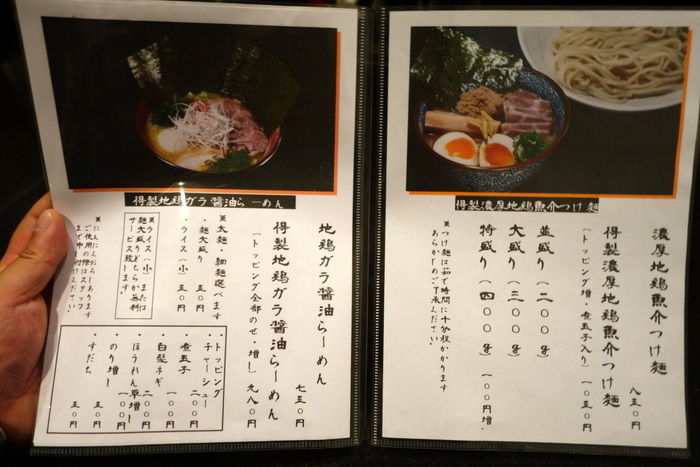 得製濃厚地鶏魚介つけ麺
濃厚地鶏魚介つけ麺 八五〇円
得製濃厚地鶏魚介つけ麺
(トッピング増・煮玉子入り) 一〇五〇円
並盛り(二〇〇g)
大盛り(三〇〇g)
特盛り(四〇〇g) 一〇〇円増・
※つけ麺は茹で時間に十分程かかります
あらかじめご了承ください。
得製地鶏ガラ醤油らーめん
地鶏ガラ醤油らーめん 七五〇円
得製地鶏ガラ醤油らーめん
(トッピング全部のせ・増し) 九八〇円
※太麺・細麺選べます
・麺大盛り 五〇円
・ライス(小) 五〇円
※ライス(小)または
麺大盛りどちらか無料
サービス致します。
※にんにんおろしあります
ご使用の際はスタッフ
まで申し付けください。
・トッピング
チャーシュー 二〇〇円
・煮玉子 一〇〇円
・白髪ネギ 二〇〇円
・ほうれん草増し 一〇〇円
・のり増し 一〇〇円
・すだち 五〇円